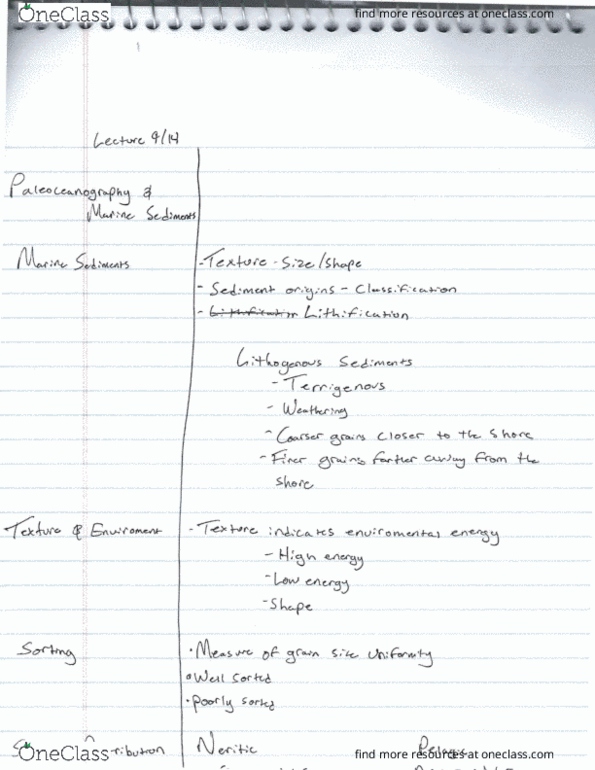 OneClass
find more resources at oneclass.com
Lecture 9/14
Paleoceanography &
Marine Sediments
Marine Sediments
- Texture - Size/Shape
- Sediment origins - Classification
- Lithification
Lithogenous Sediments
- Terrigenous
- Weathering
- Coarser grains closer to the shore
- Finer grains farther away from the
shore
Texture & Enviroment
- Texture indicates enviromental energy
- High energy
- Low energy
- Shape
Sorting
• Measure of grain size uniformity
• Well sorted
• Poorly sorted
Neritic
OneClass
find more resources at oneclass.com